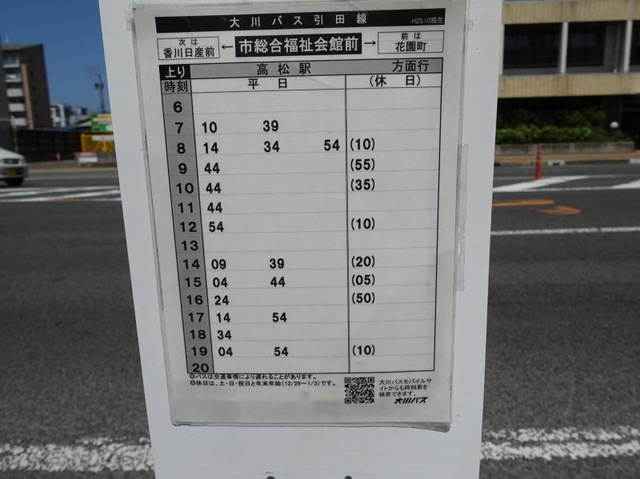 大川バス引田線 H25.10現在
次は 香川日産前 ← 市総合福祉会館前 → 前は 花園町
上り 高松駅 方面行
時刻 平日 (休日)
6
7 10 39
8 14 34 54 (10)
9 44 (55)
10 44 (35)
11 44
12 54 (10)
13
14 09 39 (20)
15 04 44 (05)
16 24 (50)
17 14 54
18 34
19 04 54 (10)
20
◎バスは交通事情により遅れることがあります。
◎休日は、土・日・祝日と年末年始(12/29〜1/3)です。
大川バスモバイルサ
イトからも時刻表を
検索できます。
大川バス